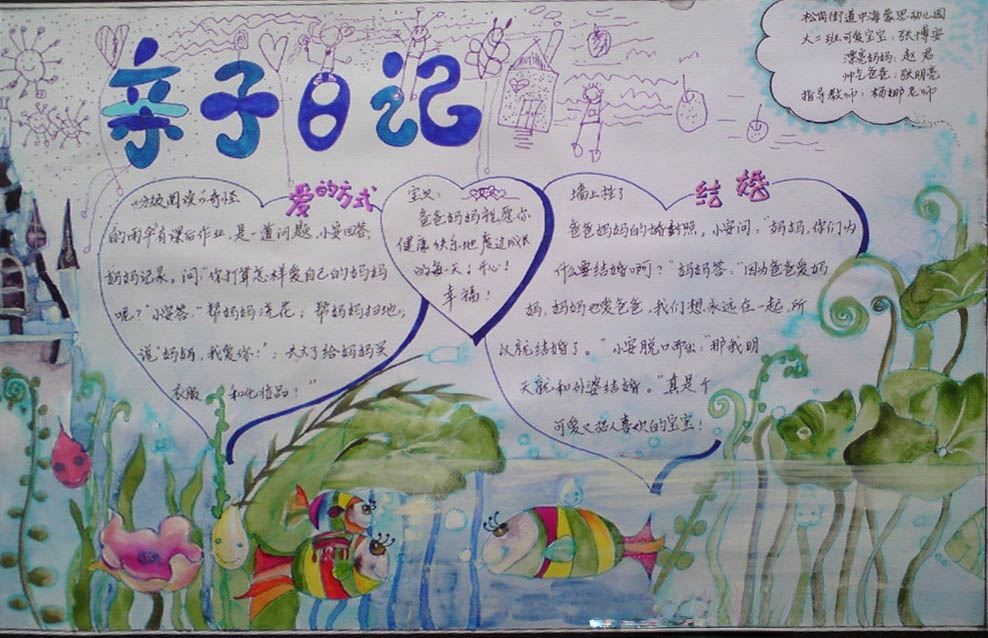 亲子日记
松岗街道中海蒙思幼儿园
大二班可爱宝宝:张博安
漂亮妈妈:赵君
帅气爸爸:张明亮
指导教师:杨娜老师
爱的方式
《分级阅读》奇怪
的雨伞有课后作业,是一道问题,小安回答,
妈妈记录。问“你打算怎样爱自己的妈妈
呢?”小安答:“帮妈妈浇花;帮妈妈扫地;
说‘妈妈,我爱你!’;长大了给妈妈买
衣服 和化妆品!”
宝贝:
爸爸妈妈祝愿你
健康快乐地度过成长
的每一天!开心!
幸福!
结婚
墙上挂了
爸爸妈妈的婚纱照,小安问:“妈妈,你们为
什么要结婚啊?”妈妈答:“因为爸爸爱妈
妈,妈妈也爱爸爸,我们想永远在一起,所
以就结婚了。”小安脱口而出:“那我明
天就和外婆结婚。”真是个
可爱又招人喜欢的宝宝!